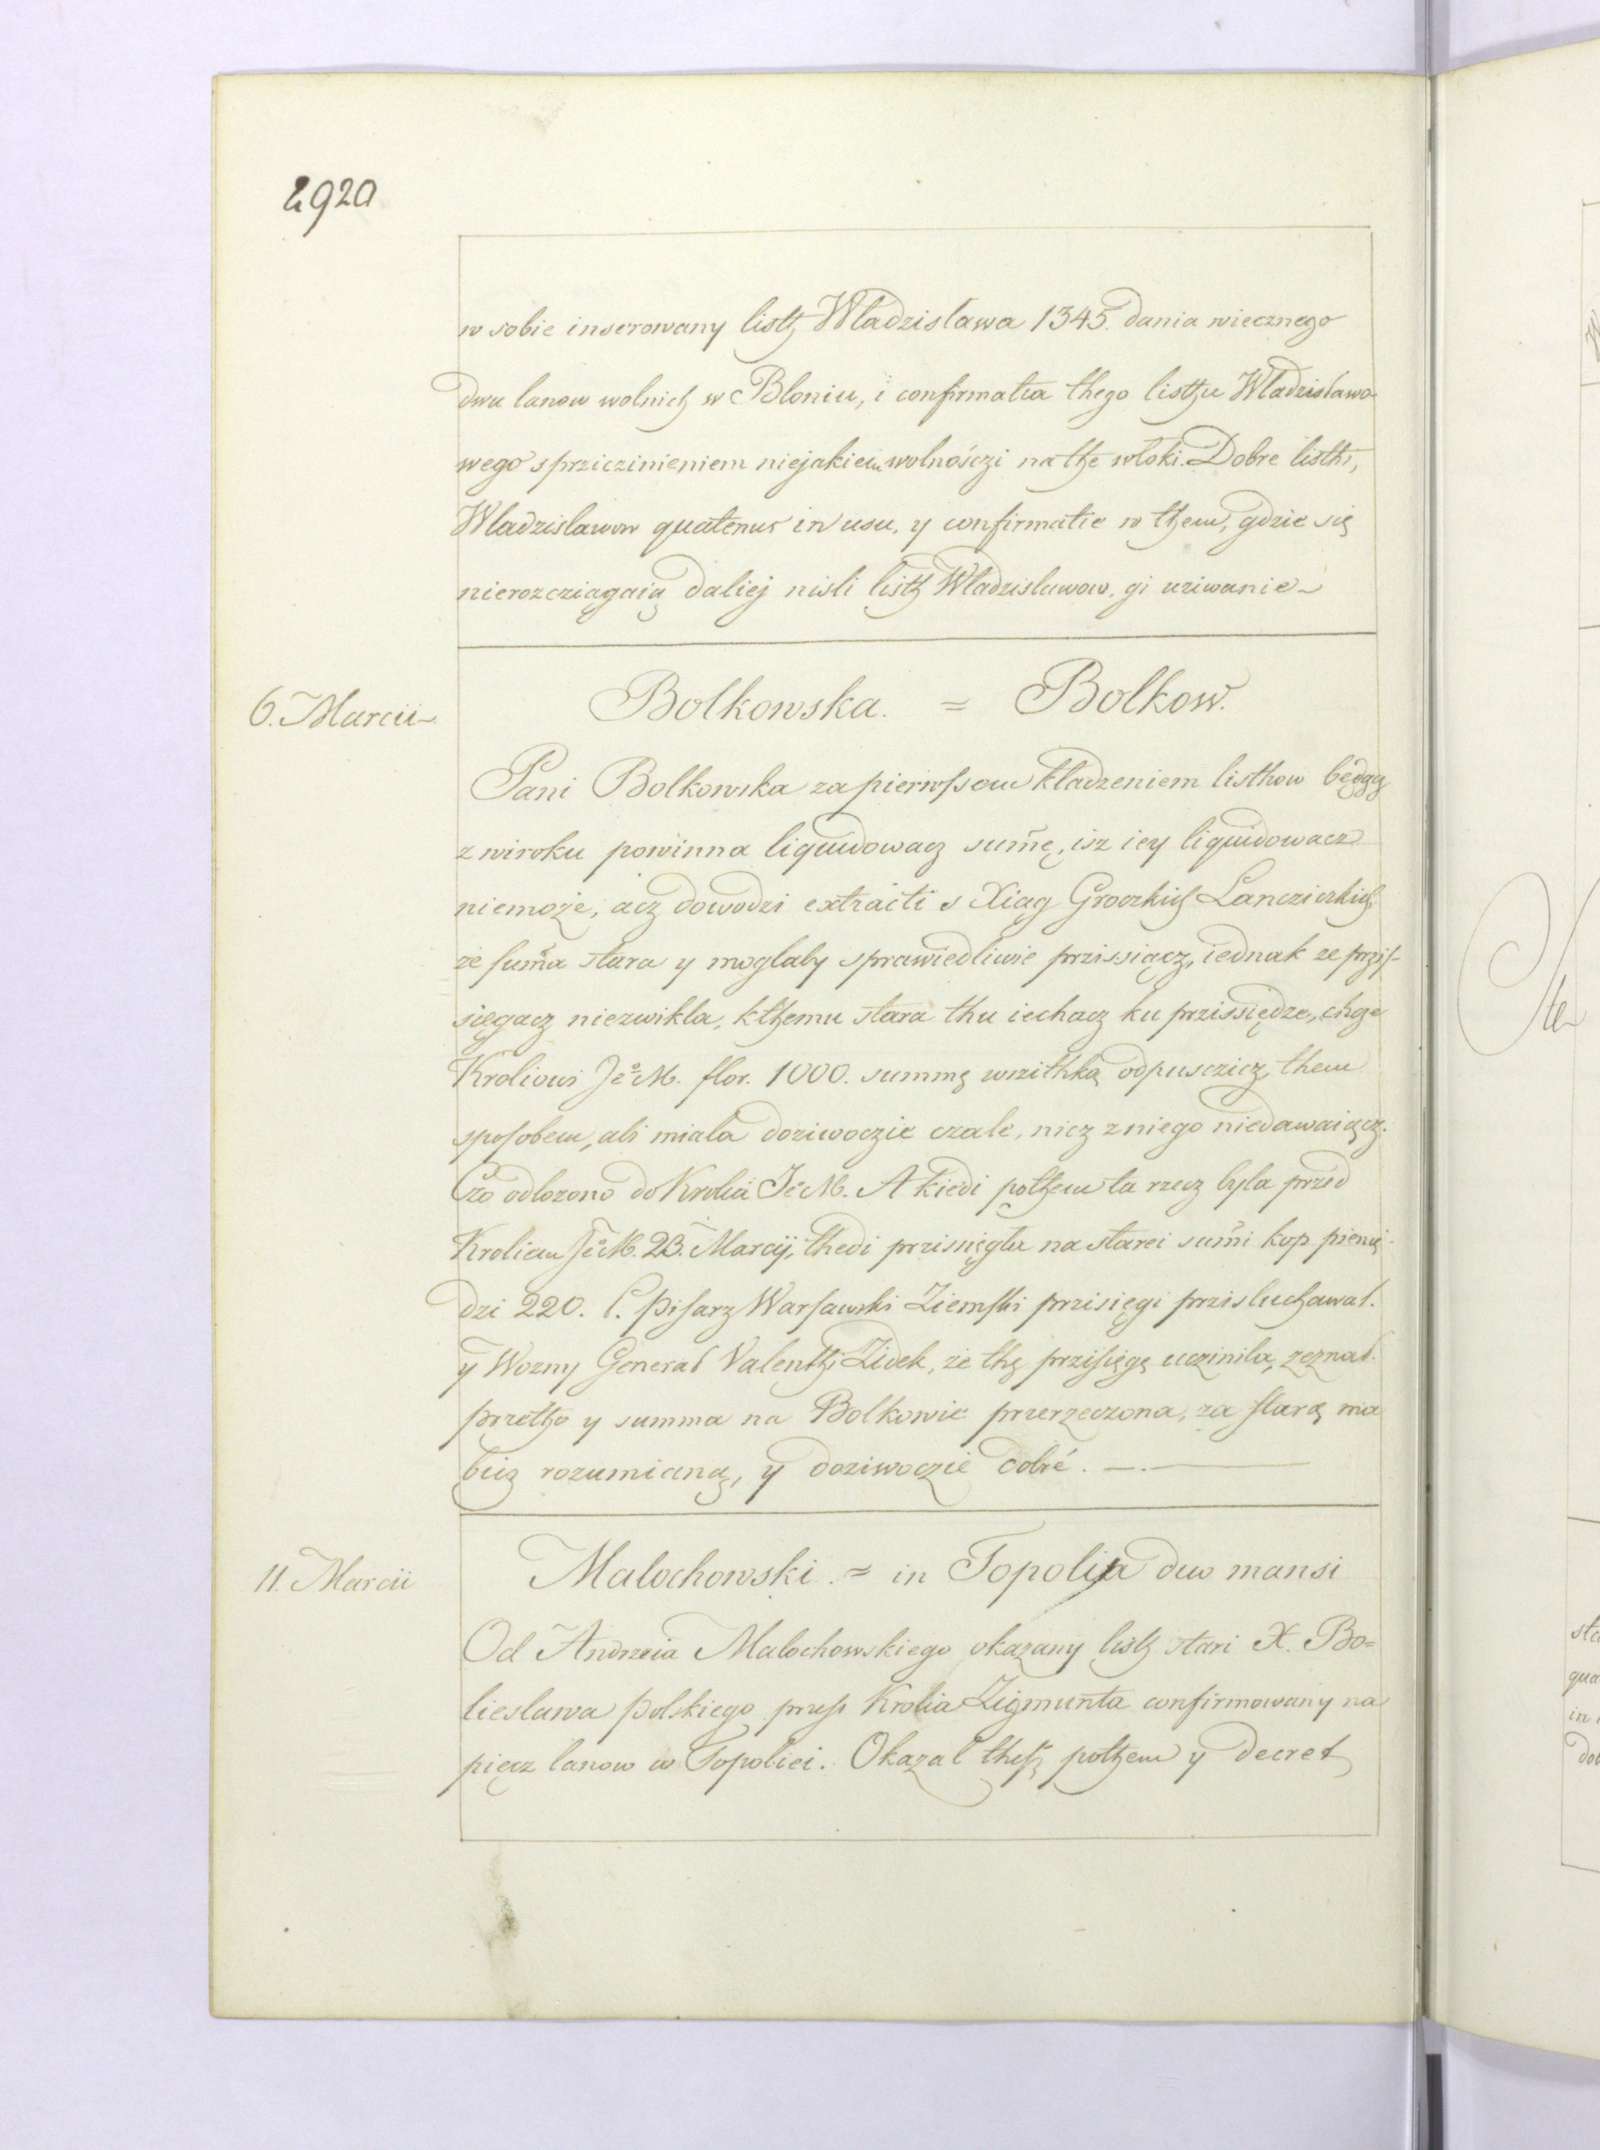 2920
w sobie inserowany listh Wladzislawa 1345. dania wiecznego
dwu lanow wolnich w Bloniu, i confirmatia thego listhu Wladzislawo
wego s prziczinieniem niejakiem wolnośczi na the wloki. Dobre listhi,
Wladzislawow quatenus in usu, y confirmatie w them, gdzie się
nierozcziągaią daliej nisli listh Wladzislawow, gi uziwanie
6. Marcii
Bolkowska. = Bolkow.
Pani Bolkowska za pierwssem kladzeniem listhow będącz
z wiroku powinna liquidowacz sum̃ę, isz iey liquidowacz
niemoże, acz dowodzi extracti s Xiąg Groczkich Lancziczkich,
że sum̃a stara y moglaby sprawiedliwie przissiącz, iednak ze przis-
sięgacz niezwikla, kthemu stara thu iechacz ku przissiędze, chce
Kroliowi Je°M. flor. 1000. summę wszithką odpusczicz, them
sposobem, abi miala doziwoczie czale, nicz z niego niedawaiącz.
Czo odlozono do Krolia JeM. A kiedi pothem ta rzecz byla przed
Kroliem Je°M. 23. Marcij, thedi przisięgla na starei sum̃i kop pienię-
dzi 220. P. Pisarz Warsawski Ziemski przisięgi przisluchawal.
y Wozny General Valenthi Zidek, że thę przisięgę uczinila, zeznal.
przetho y summa na Bolkowie przerzeczona, za starą ma
bicz rozumianą, y doziwoczie dobré.
11. Marcii
Malochowski = in Topolia duo mansi
Od Andrzeia Malochowskiego okazany listh stari X. Bo=
lieslawa polskiego przess Krolia Zigmunta confirmowany na
pięcz lanow w Topoliei. Okazal thesz pothem y decret